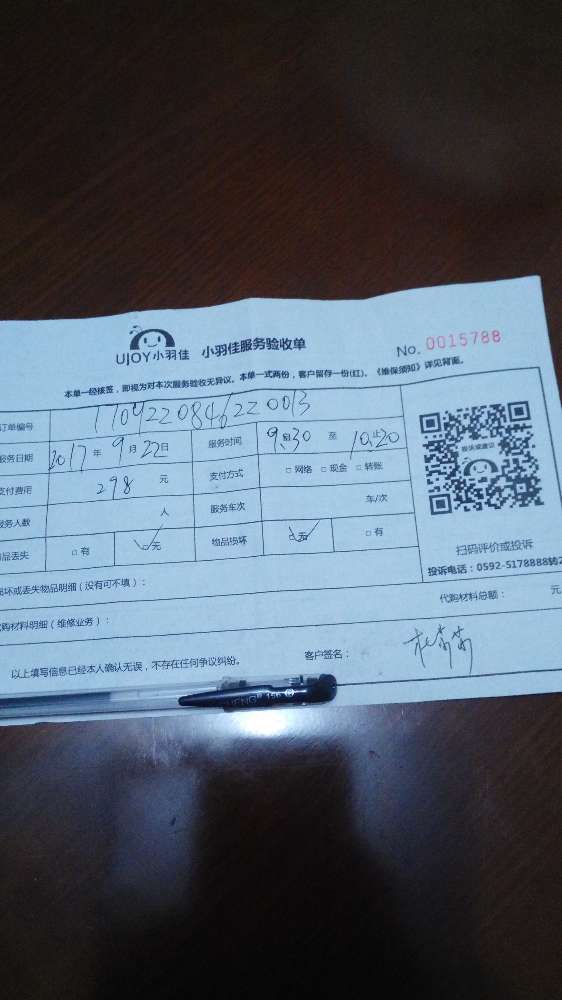 UJOY小羽佳 小羽佳服务验收单 No. 0015788
本单一经接签，即视为对本次服务验收无异议。本单一式两份，客户留存一份(红)。《维保须知》详见背面。
订单编号
服务日期 2017 年 9 月 22 日 服务时间 9:30 至 10:20
支付费用 298 元 支付方式 □ 网络 □ 现金 □ 转账
服务人数 人 服务车次 车/次
品丢失 □ 有 □ 无 物品损坏 □ 无 □ 有
损坏或丢失物品明细（没有可不填）：
购材料明细（维修业务）： 代购材料总额： 元
以上填写信息已经本人确认无误，不存在任何争议纠纷。 客户签名：
投诉或建议
扫码评价或投诉
投诉电话：0592-5178888转2